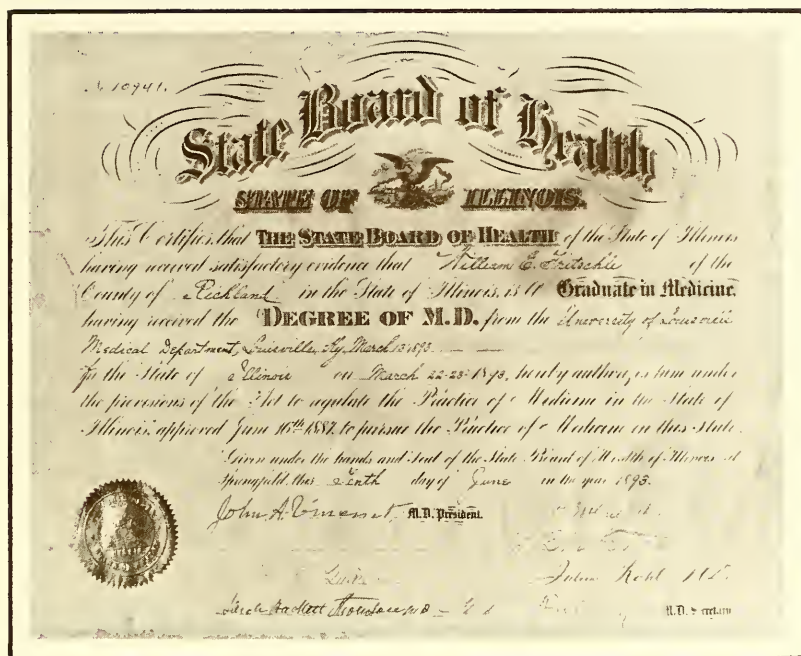 No 10941.
State Board of Health
STATE OF ILLINOIS.
This Certifies, that THE STATE BOARD OF HEALTH of the State of Illinois
having received satisfactory evidence that William E. Fritschle of the
County of Richland in the State of Illinois, is a Graduate in Medicine,
having received the DEGREE OF M.D. from the University of Louisville
Medical Department, Louisville, Ky, March 13 1893.
In the State of Illinois on March 22-23-1893, hereby authorizes him under
the provisions of the Act to regulate the Practice of Medicine in the State of
Illinois, approved June 16th 1887, to pursue the Practice of Medicine in this State.
Given under the hands and Seal of the State Board of Health of Illinois at
Springfield, this Tenth day of June in the year 1893.
John A. M.D. President.
Julius Kohl M.D.
Sarah Hackett M.D. Secretary